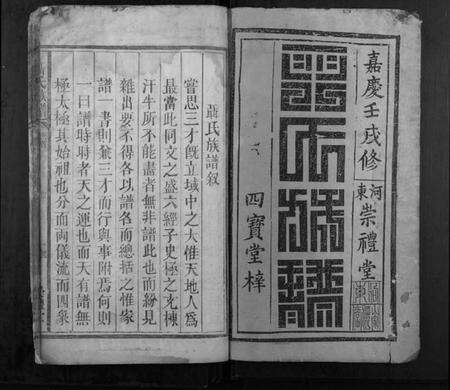 嘉慶壬戌修
河東崇禮堂
聶氏族譜
四寶堂梓
聶氏族譜叙
嘗思三才旣立域中之大惟天地人爲
最當此同文之盛六經子史極之充棟
汗牛所不能盡者無非譜此也而紛見
雜出要不得各以譜名而總括之惟家
譜一書則兼三才而行與事附焉何則
一曰譜時時者天之運也而天有譜無
極太極其始祖也分而兩儀流而四象